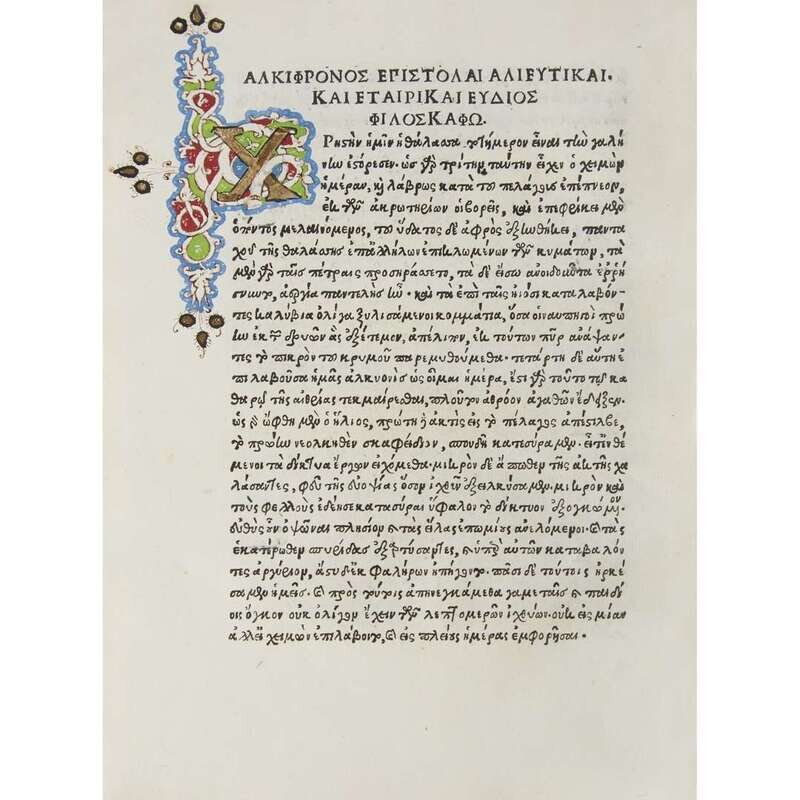 ΑΛΚΙΦΡΟΝΟΣ ΕΠΙΣΤΟΛΑΙ ΑΛΙΕΥΤΙΚΑΙ.
ΚΑΙ ΕΤΑΙΡΙΚΑΙ ΕΥΔΙΟΣ
ΦΙΛΟΣΚΑΦΩ.
Χ Ρηστὴν ἡμῖν ἡ θάλασσα τὸ τήμερον εἶναι τὴν γαλή
νην ἐστόρεσεν. ὡς γὰρ τρίτην ταύτην εἶχεν ὁ χειμὼν
ἡμέραν, καὶ λάβρως κατὰ τοῦ πελάγους ἐπέπνεον,
ἐκ τῶν ἀκρωτηρίων οἱ βορεῖς, καὶ ἐπεφρίκει μὲν
ὁ πόντος μελαινόμενος, τοῦ ὕδατος δὲ ἀφρὸς ἐξηνθήκει, παντα
χοῦ τῆς θαλάσσης ἐπ' ἀλλήλων ἐπικλωμένων τῶν κυμάτων, τὰ
μὲν γὰρ ταῖς πέτραις προσηράσσετο, τὰ δὲ εἴσω ἀνοιδοῦντα ἐρρή
γνυντο, ἀεργία παντελὴς ἦν. καὶ τὰ ἐπὶ ταῖς ἠιόσι καταλαβόν
τες καλύβια ὀλίγα ξυλισάμενοι κομμάτια, ὅσα οἱ ναυπηγοὶ πρώ
ην ἐκ τῶν δρυῶν ἃς ἐξέτεμον, ἀπέλιπον, ἐκ τούτων πῦρ ἀνάψαν
τες τὸ πικρὸν τοῦ κρυμοῦ παρεμυθούμεθα. τετάρτη δὲ αὕτη ἐ
πιλαβοῦσα ἡμᾶς ἀλκυονὶς ὡς οἶμαι ἡμέρα, ἔστι γὰρ τοῦτο τῷ κα
θαρῷ τῆς αἰθρίας τεκμαίρεσθαι, πλοῦτον ἀθρόον ἀγαθῶν ἔδειξεν.
ὡς γὰρ ὤφθη μὲν ὁ ἥλιος, πρώτη δὲ ἀκτὶς εἰς τὸ πέλαγος ἀπέστιλβε,
τὸ πρώην νεολκηθὲν σκαφίδιον, σπουδῇ κατεσύραμεν. εἶτ' ἐνθέ
μενοι τὰ δίκτυα ἔργων εἰχόμεθα. μικρὸν δὲ ἄπωθεν τῆς ἀκτῆς χα
λάσαντες, φεῦ τῆς εὐοψίας ὅσον ἰχθύν ἐξειλκύσαμεν. μικρὸν καὶ
τοὺς φελλοὺς ἐδέησε κατασῦραι ὕφαλον τὸ δίκτυον ἐξωγκωμένον.
εὐθὺς οὖν ὀψῶναι πλησίον καὶ τὰς ξίλας ἐπωμίους ἀνελόμενοι. καὶ τὰς
ἑκατέρωθεν σπυρίδας ἐξαρτύσαντες, καὶ ὑπὲρ αὐτῶν καταβαλόν
τες ἀργύριον, ἄστυδε ἐκ Φαλήρων ἠπείγοντο. πᾶσι δὲ τούτοις ἠρκέ
σαμεν ἡμεῖς. καὶ πρὸς τούτοις ἀπηνεγκάμεθα γαμεταῖς καὶ παιδί
οις ὄγκον οὐκ ὀλίγον ἔχειν τῶν λεπτομερῶν ἰχθύων. οὐκ εἰς μίαν
ἀλλ' εἰ χειμὼν ἐπιλάβοιτο, καὶ εἰς πλείους ἡμέρας ἐμφορῆσαι.